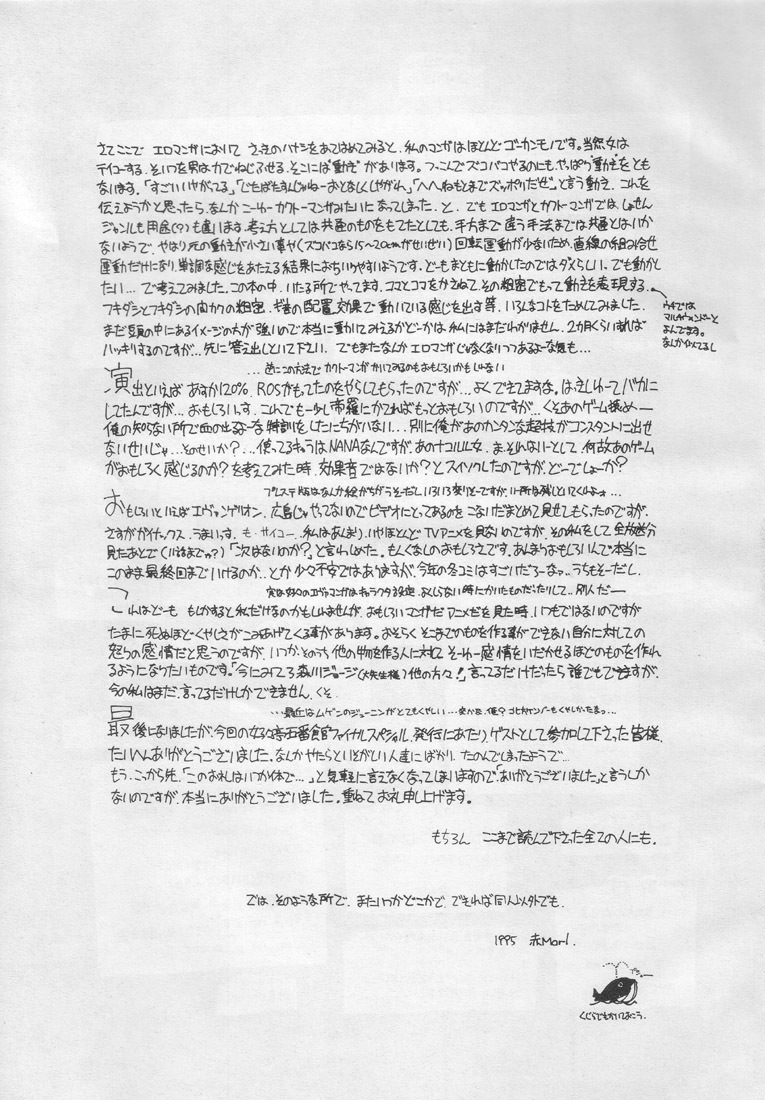 さてここで エロマンガにおいて さっきのハナシをあてはめてみると、私のマンガはほとんどゴーカンモノです。当然女は
テイコーする、そいつを男は力でねじふせる、そこには"動き"があります。つっこんでズコバコやるのにも、やっぱり"動き"をとも
ないます。「すごい いやがってる」「じたばたすんじゃねーおとなしくしやがれ」「へへ ねもとまでズッポリだぜ」と言う動き、これを
伝えようかと思ったら、なんか こーゆーカクトーマンガみたいになってしまった、と、でもエロマンガとカクトーマンガでは、しょせん
ジャンルも用途(?)も違います。考え方としては共通のものをもてたとしても、手方まで違う手法までは共通とはいか
ないようで、やはり元の動きが小さい事や(ズコバコなら15〜20cmがせいぜい)回転運動が少ないため、直線の組み合せ
運動だけになり、単調な感じをあたえる結果におちいりやすいようです。どーもまともに動かしたのではダメらしい、でも動かし
たい…で考えてみました。この本の中、いたる所でやってます、コマとコマをかさねて、その粗密でもって動きを表現する、
フキダシとフキダシの向カクの粗密、擬音の配置、効果で動いている感じを出す等、いろんなコトをためしてみました。
まだ頭の中にあるイメージの方が強いので本当に動いてみえるかどーかは私にはまだわかりません、2カ月くらいすれば
ハッキリするのですが…先に答え出しといて下さい、でもまたなんかエロマンガじゃなくなりつつあるよーな気も…
ウチでは
マルチウィンドーと
よんでます。
なんかにてるし
…逆にこの方法でカクトーマンガかいてみるのもおもしろいかもしれない
演出といえば あすか120%、ROSがもってたのをやらしてもらったのですが…よくできてますなぁ。はっきしゆーてバカに
してたんですが…おもしろいっす、これでもー少し 帝羅にかてればもっとおもしろいのですが…くそあのゲーム极め—
俺の知らない所で血の出るよーな特訓をしたにちがいない…別に俺があのカンタンな超技がコンスタントに出せ
ないせいじゃ…そのせいか?…使ってるキャラはNANAなんですが、あの十コルル女、ま、それはいーとして、何故あのゲーム
がおもしろく感じるのか?を考えてみた時、効果音ではないか?とスイソクしたのですがどーでしょーか?
プレステ版はなんか絵がちがうそーだし いろいろ変りそーですが、いー所は残しといてくれよォ…
おもしろいといえばエヴァンゲリオン、広島じゃやってないのでビデオにとってあるのを こないだまとめて見せてもらったのですが、
さすがガイナックス、うまいっす、も・サイコー、私はあんまり、いやほとんどTVアニメを見ないのですが、その私をして 全放送分
見たあとで(10話までか?)「次はないのか?」と言わしめた。もんくなしのおもしろさです。あんまりおもしろいんで本当に
このまま最終回までいけるのか、とか少々不安ではありますが、今年の冬コミはすごいだろーなァ、うちもそーだし、
実は初めのエヴァマンガはキャラクタ設定、よくしらない時にかいたものだったりして、別人だー
これはどーも もしかすると私だけなのかもしれませんが、おもしろいマンガだアニメだを見た時、いつもではないのですが
たまに死ぬほどくやしさがこみあげてくる事があります。おそらくそこまでのものを作る事ができない自分に対しての
怒りの感情だと思うのですが、いつかそのうち他の物を作る人に対して そーゆー感情をいだかせるほどのものを作れ
るようになりたいものです。「今にみてろ森川ジョージ(大先生様)他の方々!」言ってるだけだったら誰でもできますが、
今の私はまだ、言ってるだけしかできません、くそ。
…最近はムゲンのジューニンがとてもくやしい…
最後になりましたが、今回の女子々亭五番館ファイナルスペシャル、発行にあたり、ゲストとして参加して下さった皆様、
たいへんありがとうございました。なんかやたらといそがしい人達にばかり、たのんでしまったようで…
もう、こっから先、「このお礼はいつか体で…」と気軽に言えなくなってしまいますので「ありがとうございました」と言うしか
ないのですが、本当にありがとうございました。重ねてお礼申し上げます。
もちろん ここまで読んで下さった全ての人にも。
では、そのような所で、またいつかどこかで、できれば同人以外でも。
1995 赤Mari.
くじらでもかいておこう。